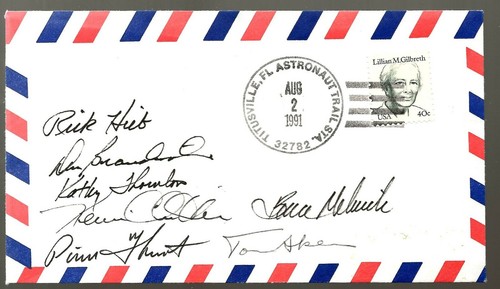 TITUSVILLE, FL ASTRONAUT TRAIL STA.
AUG
2
1991
32782
Lillian M. Gilbreth
USA 40c
Rick Hieb
Dan Brandenstein
Kathy Thornton
Kevin Chilton
Bruce Melnick
Pierre Thuot
Tom Akers